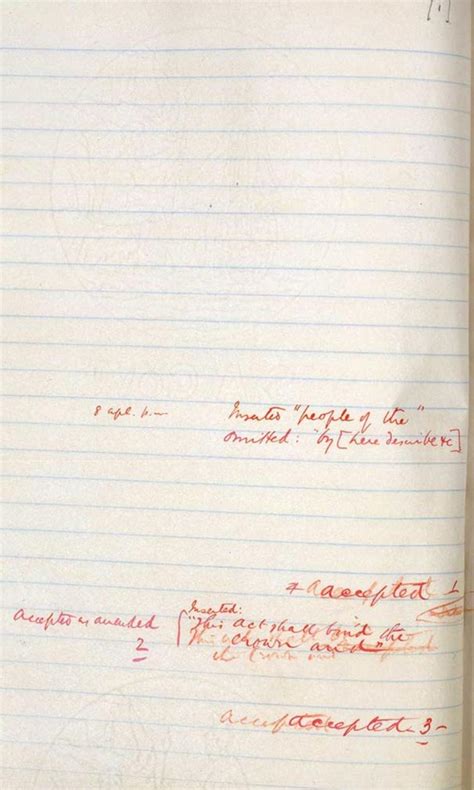 [1]
8 apl. p.m. Inserted "people of the"
omitted: "by [here describe &c]
accepted 1
accepted as amended Inserted:
2 "This Act shall bind the
Crown and"
accepted - 3 -